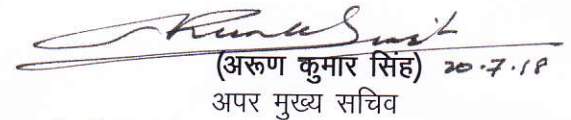 (अरूण कुमार सिंह) 20.7.18
अपर मुख्य सचिव